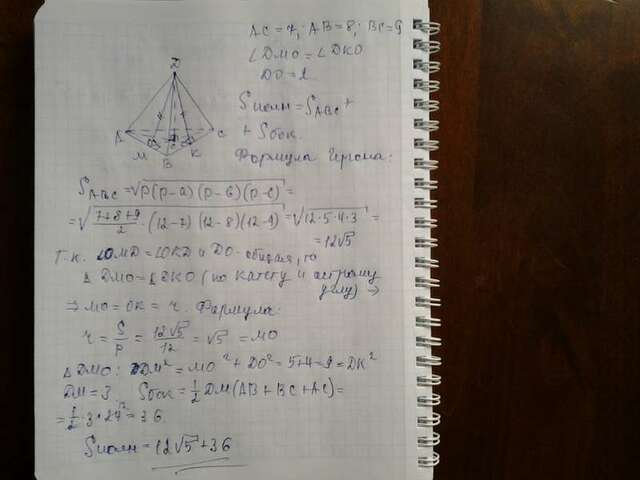 AC = 7; AB = 8; BC = 9
∠DMO = ∠DKO
DO = 2
Sполн = S ABC +
+ Sбок.
Формула Герона:
D
A
C
M
B
K
S ABC = √p(p-a)(p-b)(p-c) =
= √(7+8+9)/2 · (12-7)(12-8)(12-9) = √12·5·4·3 =
= 12√5
Т.к. ∠OMD = ∠OKD и DO - общая, то
Δ DMO = Δ DKO (по катету и острому
углу) ⇒
⇒ MO = OK = r. Формула:
r = S/p = 12√5/12 = √5 = MO
Δ DMO: DM² = MO² + DO² = 5+4 = 9 = DK²
DM = 3. Sбок = 1/2 DM (AB + BC + AC) =
= 1/2 · 3 · 24 = 36
Sполн = 12√5 + 36